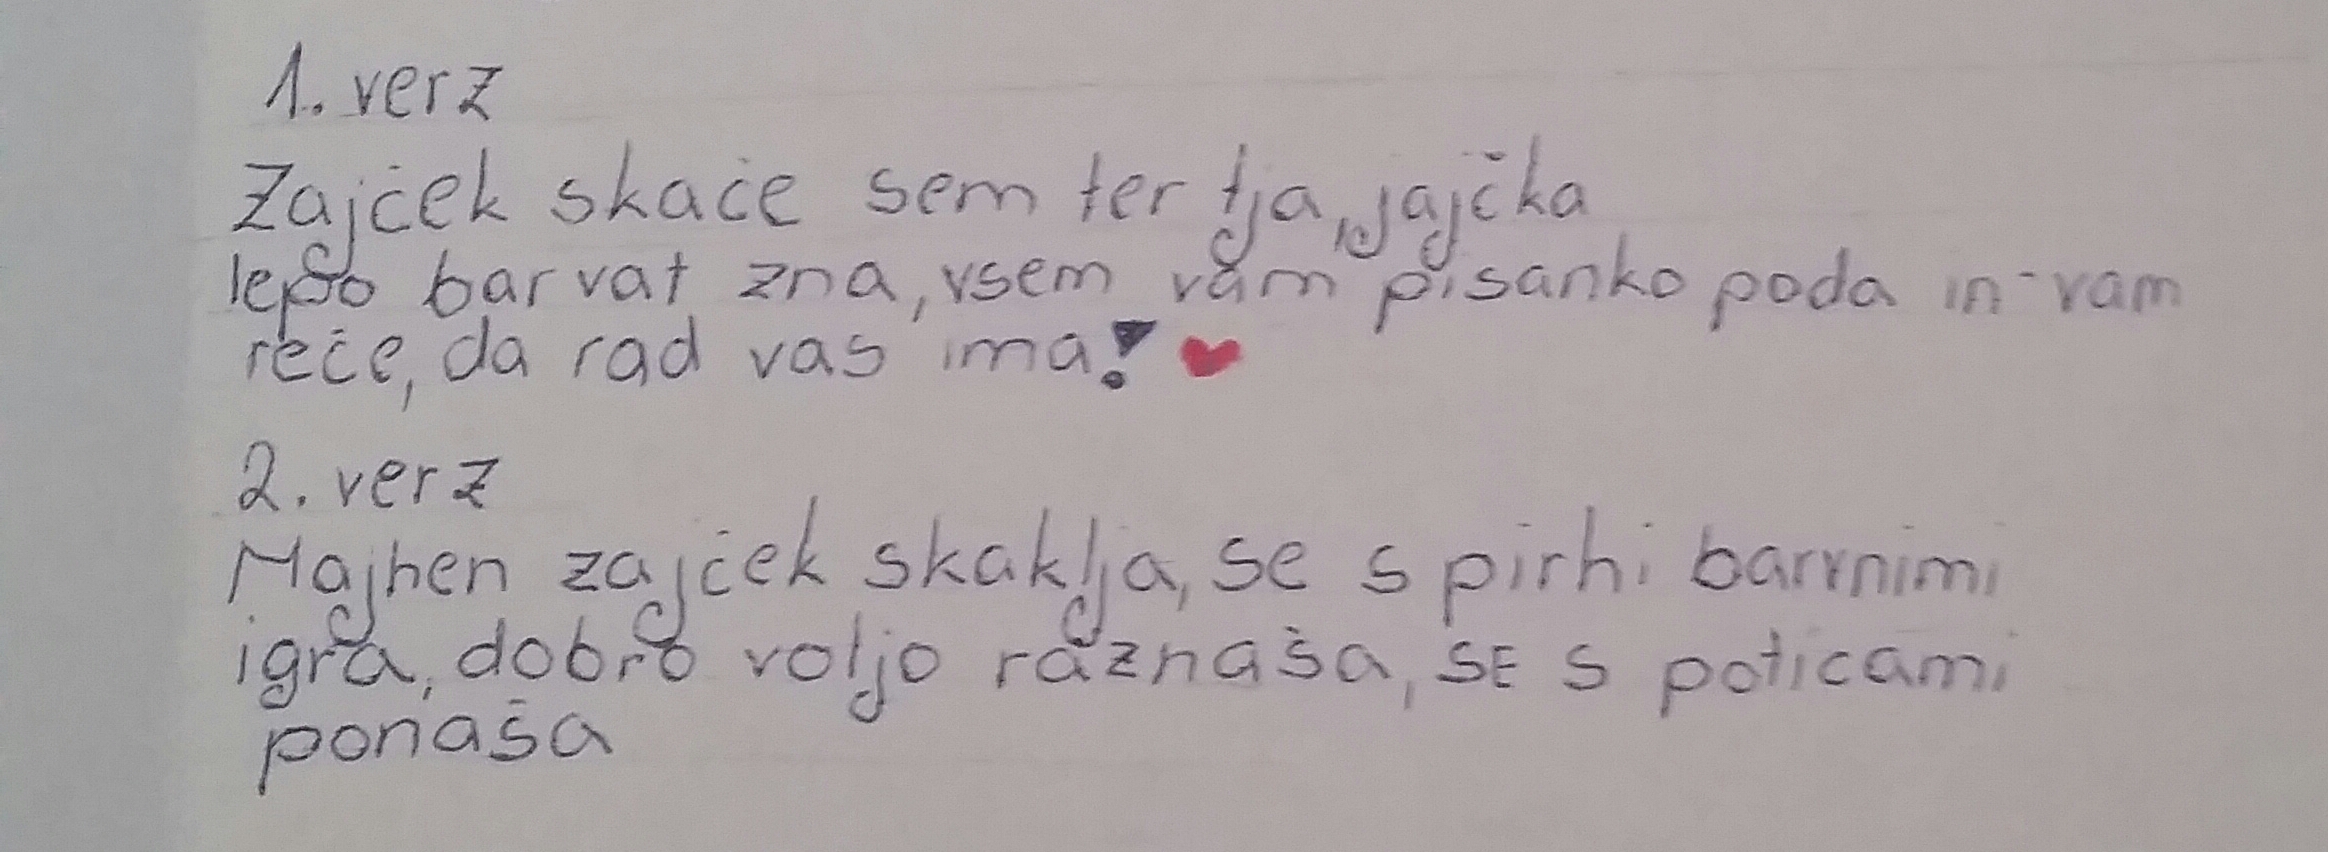 1. verz
Zajček skače sem ter tja, jajčka
lepo barvat zna, vsem vam pisanko poda in vam
reče, da rad vas ima! ❤
2. verz
Majhen zajček skaklja, se s pirhi barvnimi
igra, dobro voljo raznaša, SE s poticami
ponaša